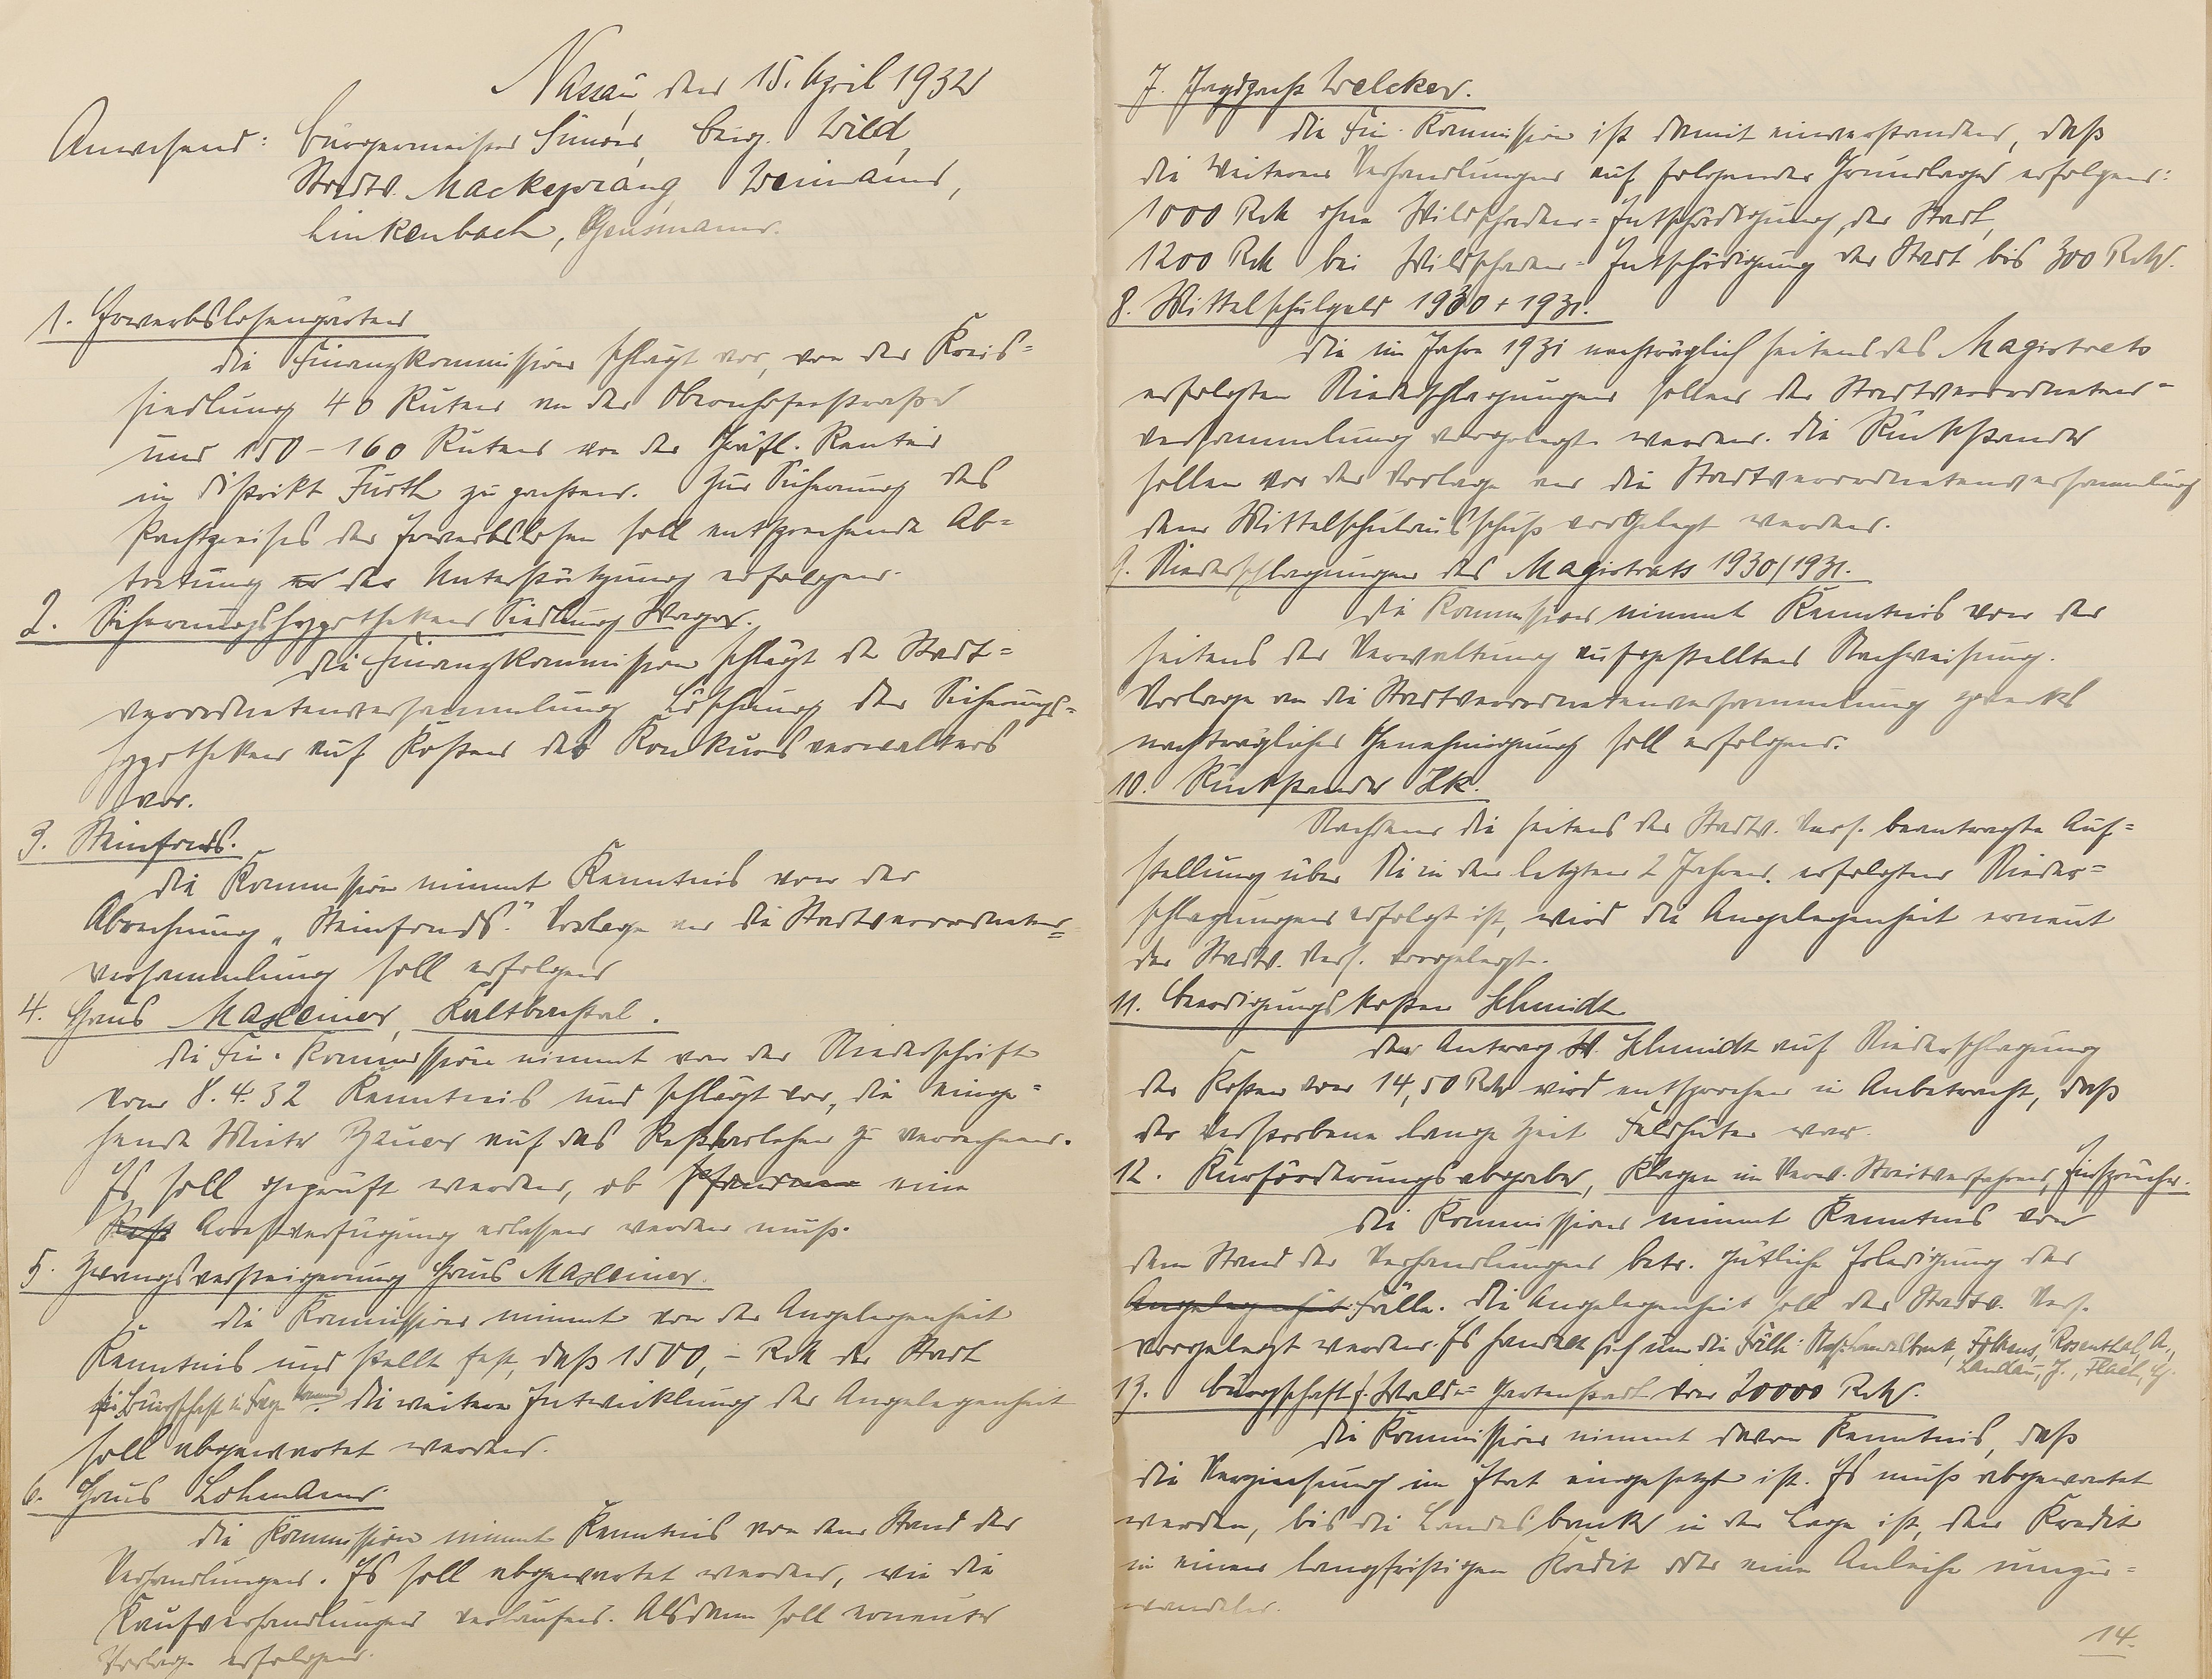 Nassau, den 15. April 1932
Anwesend: Bürgermeister Simons, Beig. Wild,
Stadtv. Mackeprang, Weimann,
Linkenbach, Gensmann.
1. Erwerbslosengärten
Die Finanzkommission schlägt vor, von der Kreis=
siedlung 40 Ruten an der Obernhoferstraße
und 150–160 Ruten von der Gräfl. Rentei
im Distrikt Fürth zu pachten. Zur Sicherung des
Pachtpreises der Erwerbslosen soll entsprechende Ab=
tretung der Unterstützung erfolgen.
2. Sicherungshypotheken Siedlung
Die Finanzkommission schlägt der Stadt=
verordnetenversammlung Löschung der Sicherungs=
hypotheken auf Kosten des Konkursverwalters
vor.
3. Steinfonds.
Die Kommission nimmt Kenntnis von der
Abrechnung „Steinfonds." Vorlage an die Stadtverordneten=
versammlung soll erfolgen
4. Haus Maxeiner, Kaltbachtal.
Die Fin. Kommission nimmt von der Niederschrift
vom 8.4.32 Kenntnis und schlägt vor, die einge=
hende Miete auf das Restdarlehen zu verrechnen.
Es soll geprüft werden, ob eine
Arrestverfügung erlassen werden muß.
5. Zwangsversteigerung Haus Maxeiner.
Die Kommission nimmt von der Angelegenheit
Kenntnis und stellt fest, daß 1500,– RM der Stadt
Bürgschaft in Frage kommen. Die weitere Entwicklung der Angelegenheit
soll abgewartet werden.
6. Haus Lohmann.
Die Kommission nimmt Kenntnis von dem Stand der
Verhandlungen. Es soll abgewartet werden, wie die
Kaufverhandlungen verlaufen. Alsdann soll erneute
Vorlage erfolgen.
7. Jagdpacht Welcker.
Die Fin. Kommission ist damit einverstanden, daß
die weiteren Verhandlungen auf folgender Grundlage erfolgen:
1000 RM ohne Wildschaden=Entschädigung der Stadt,
1200 RM bei Wildschaden=Entschädigung der Stadt bis 300 RM.
8. Mittelschulgeld 1930 + 1931.
Die im Jahre 1931 nachträglich seitens des Magistrats
erfolgten Niederschlagungen sollen der Stadtverordneten=
versammlung vorgelegt werden. Die Rückstände
sollen vor der Vorlage an die Stadtverordnetenversammlung
dem Mittelschulausschuß vorgelegt werden.
9. Niederschlagungen des Magistrats 1930/1931.
Die Kommission nimmt Kenntnis von der
seitens der Verwaltung aufgestellten Nachweisung.
Vorlage an die Stadtverordnetenversammlung zwecks
nachträglicher Genehmigung soll erfolgen.
10. Rückstände
Nachdem die seitens der Stadtv. Vers. beantragte Auf=
stellung über die in den letzten 2 Jahren erfolgten Nieder=
schlagungen erfolgt ist, wird die Angelegenheit erneut
der Stadtv. Vers. vorgelegt.
11. Beerdigungskosten Schmidt
Dem Antrag W. Schmidt auf Niederschlagung
der Kosten von 14,50 RM wird entsprochen in Anbetracht, daß
der Verstorbene lange Zeit Feldhüter war.
12. Kurförderungsabgabe, Klagen im Verw. Streitverfahren, Einsprüche.
Die Kommission nimmt Kenntnis von
dem Stand der Verhandlungen betr. gütliche Erledigung der
Angelegenheit Fälle. Die Angelegenheit soll der Stadtv. Vers.
vorgelegt werden. Es handelt sich um die Fälle: Nass. Landesbank, Rosenthal, A.,
Landau, J.,
13. Bürgschaft f. Wald= Gartenstadt von 20000 RM.
Die Kommission nimmt davon Kenntnis, daß
die Verzinsung im Etat eingesetzt ist. Es muß abgewartet
werden, bis die Landesbank in der Lage ist, den Kredit
in einen langfristigen Kredit oder eine Anleihe umzu=
wandeln.
14.